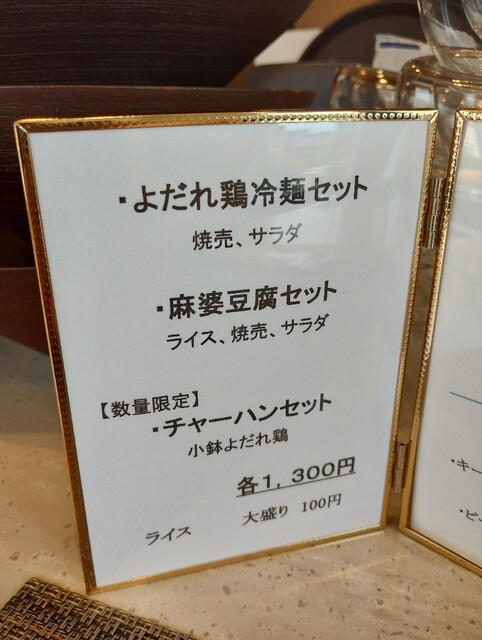 ・よだれ鶏冷麺セット
焼売、サラダ
・麻婆豆腐セット
ライス、焼売、サラダ
【数量限定】
・チャーハンセット
小鉢よだれ鶏
各1,300円
ライス 大盛り 100円
・キー
・ビ